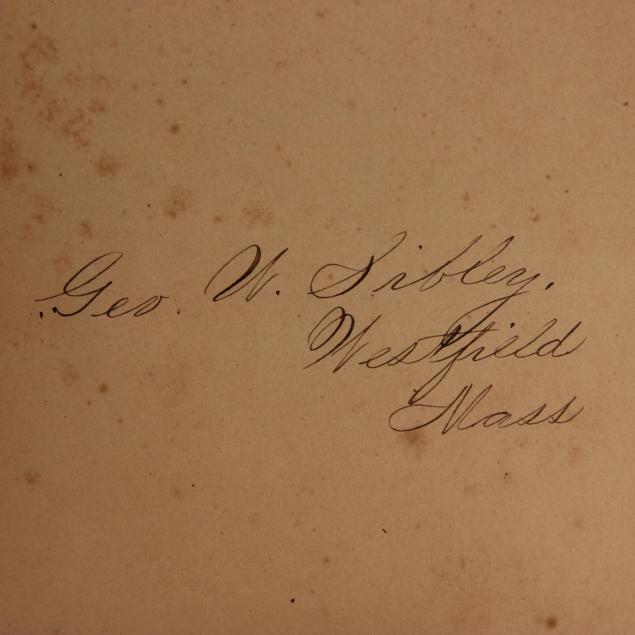 Geo. W. Sibley.
Westfield
Mass